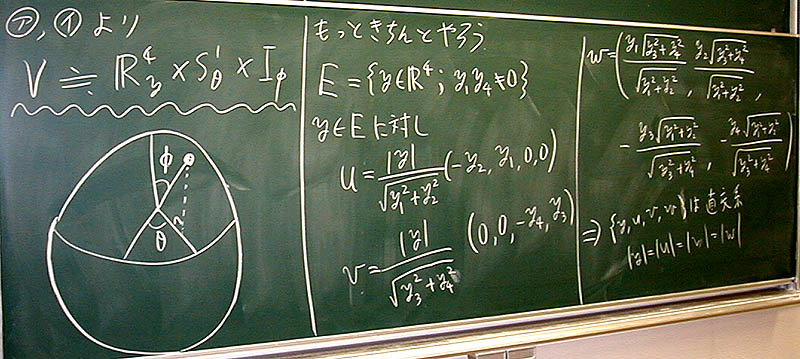 ㋐, ㋑ より
V ≒ ℝ⁴_y × S¹_θ × I_φ
φ
θ
もっときちんとやろう
E = {y∈ℝ⁴ ; y₁y₄≠0}
y∈E に対し
u = |y|/√(y₁²+y₂²) (-y₂, y₁, 0, 0)
v = |y|/√(y₃²+y₄²) (0, 0, -y₄, y₃)
w = (y₁√(y₃²+y₄²)/√(y₁²+y₂²), y₂√(y₃²+y₄²)/√(y₁²+y₂²),
-y₃√(y₁²+y₂²)/√(y₃²+y₄²), -y₄√(y₁²+y₂²)/√(y₃²+y₄²))
⇒ {y, u, v, w} は直交系
|y|=|u|=|v|=|w|